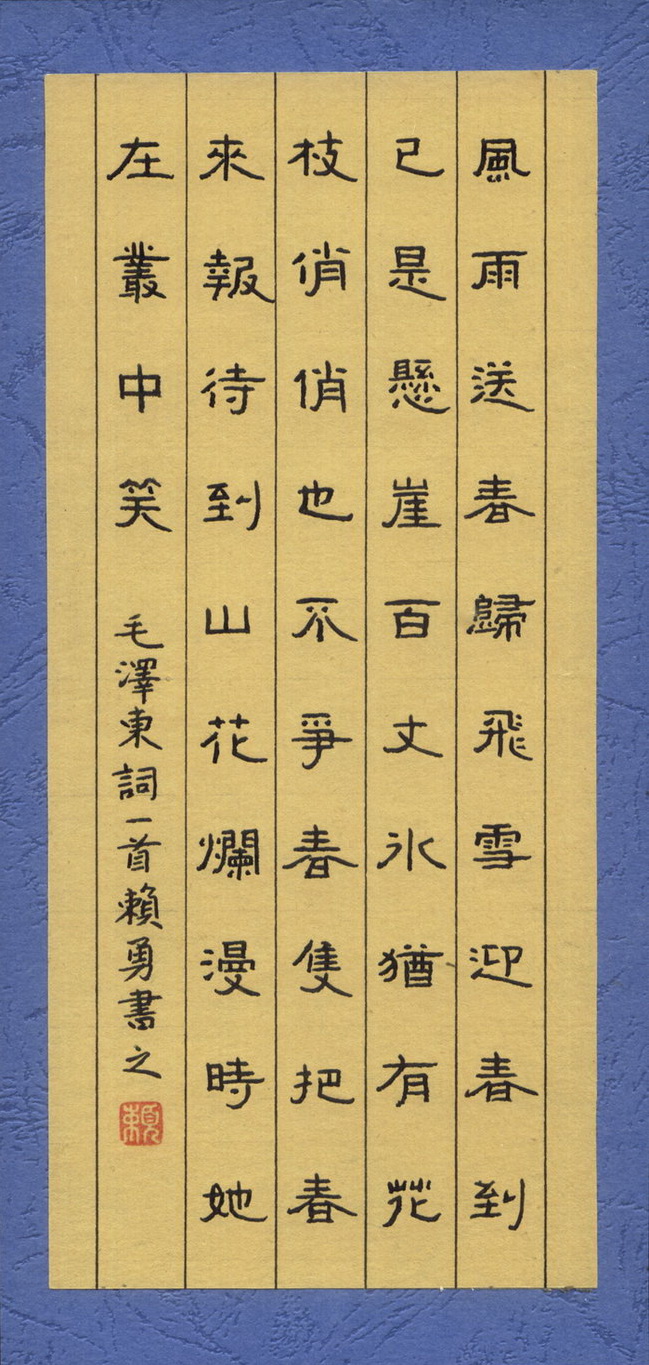 風雨送春歸飛雪迎春到
已是懸崖百丈冰猶有花
枝俏俏也不爭春隻把春
來報待到山花爛漫時她
在叢中笑 毛澤東詞一首賴勇書之
賴